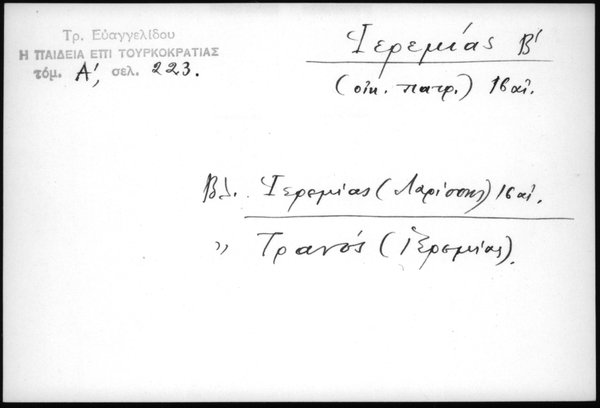 Τρ. Εὐαγγελίδου
Η ΠΑΙΔΕΙΑ ΕΠΙ ΤΟΥΡΚΟΚΡΑΤΙΑΣ
τόμ. Α', σελ. 223.
Ἱερεμίας Β'
(οἰκ. πατρ.) 16 αἰ.
Βλ. Ἱερεμίας (Λαρίσσης) 16 αἰ.
〃 Τρανός (Ἱερεμίας).